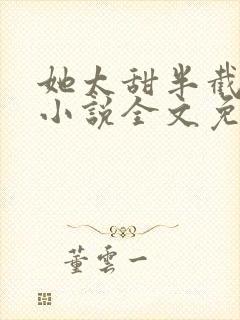 她太甜半截
小說全文免
董雲一